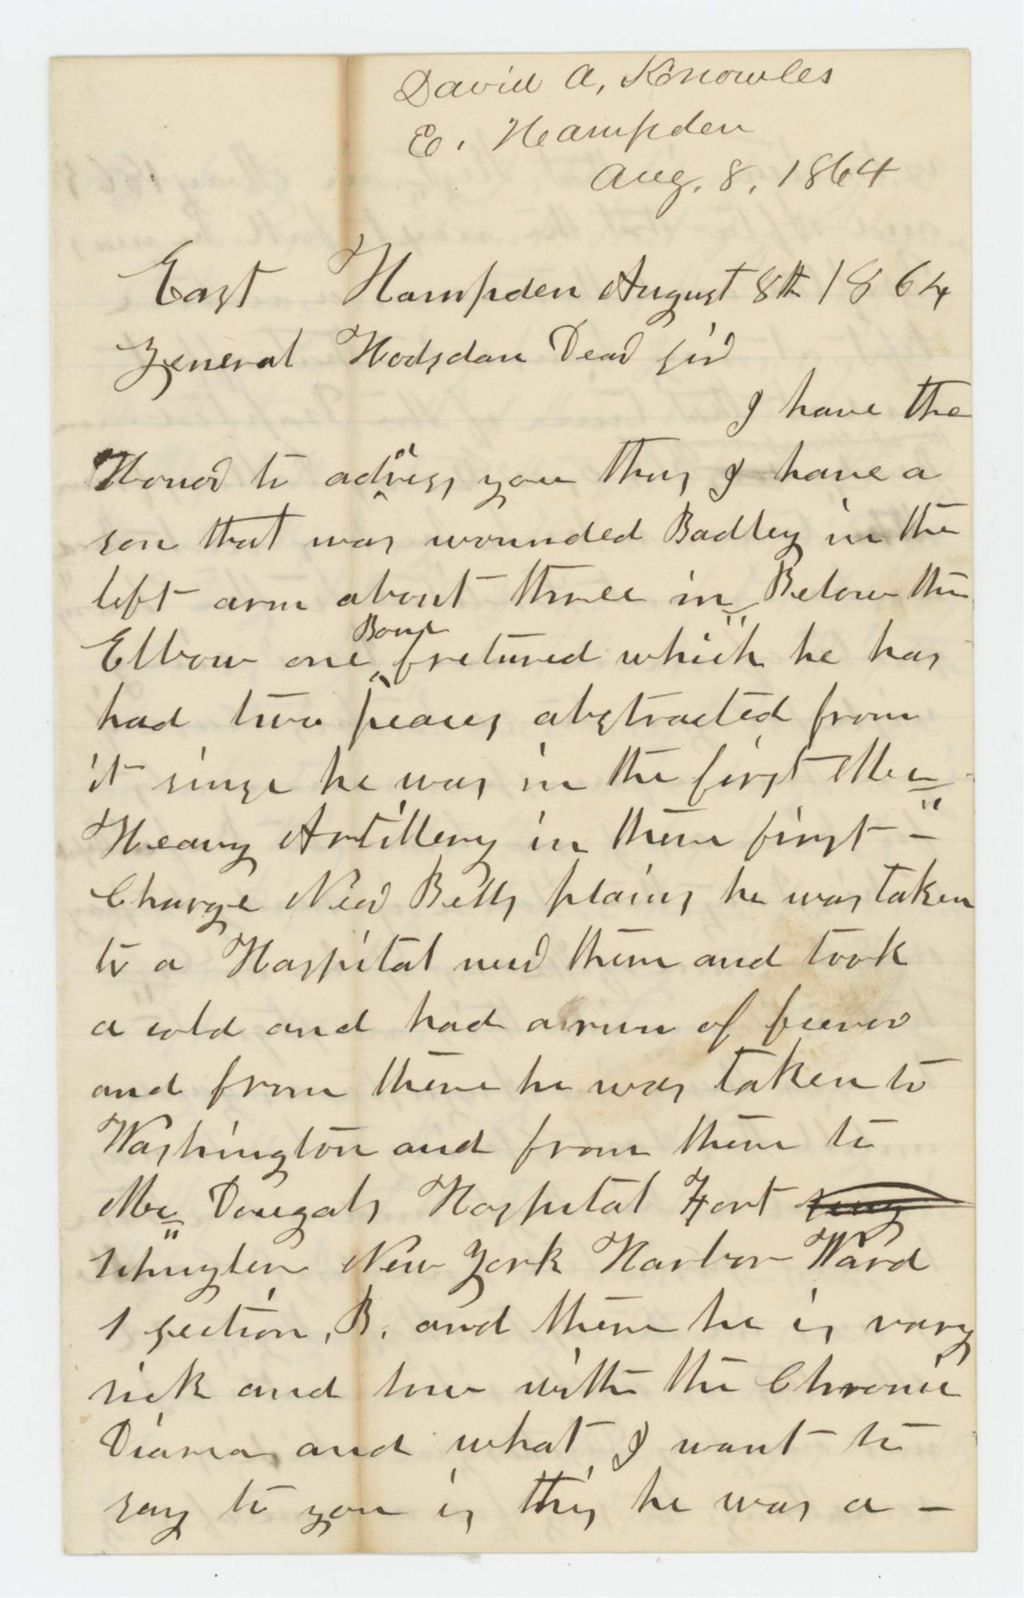 David A, Knowles
E. Hampden
Aug. 8, 1864
East Hampden August 8th 1864
General Hodsdon Dear sir
I have the
Honor to adress you thus I have a
son that was wounded Badley in the
left arm about three in Below the
Elbow one Bone fretured which he has
had two peaces abstracted from
it sinse he was in the first Me
Heavy Artillery in there first -
Charge Near Bells plains he was taken
to a Haspital near there and took
a cold and had a run of feever
and from there he was taken to
Washington and from there to
Mc Dougals Hospital Fort
Schuyler New York Harbor Ward
1 section, B. and there he is vary
sick and low with the Chronic
Diarrea and what I want to
say to you is this he was a -